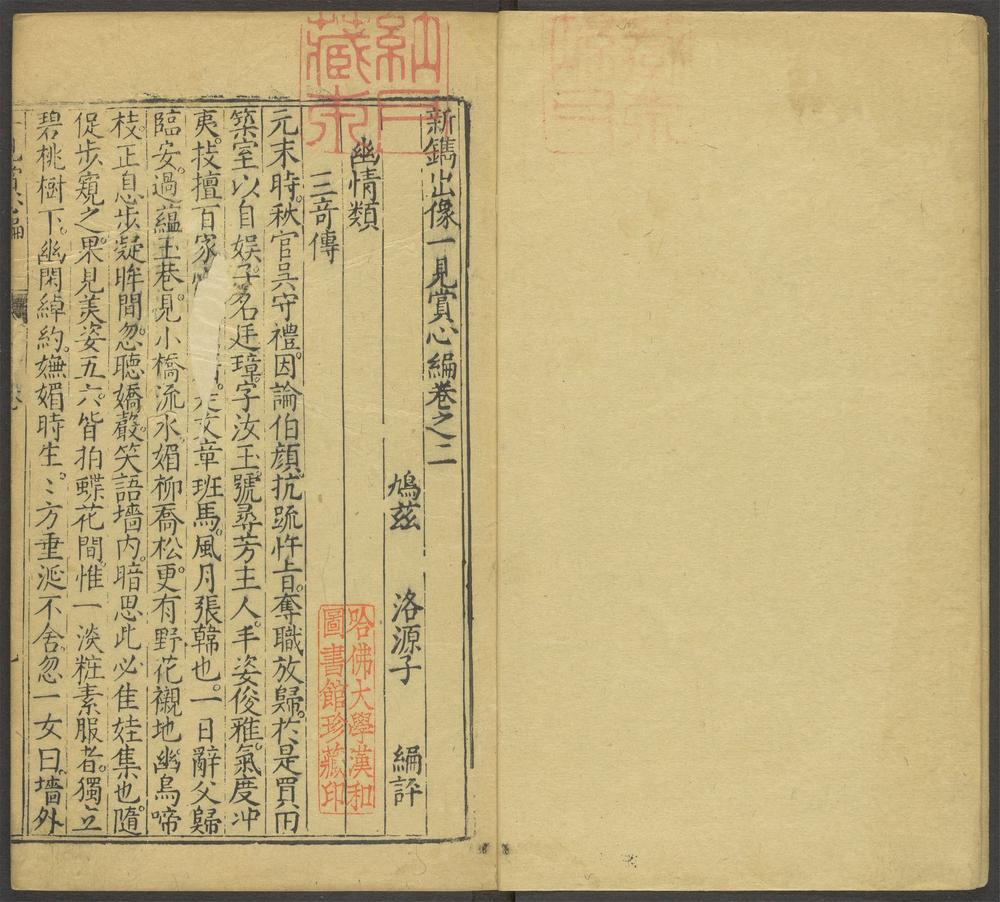 新鐫出像一見賞心編卷之二
鳩茲 洛源子 編評
幽情類
三奇傳
元末時。秋官吳守禮。因論伯顏。抗疏忤旨。奪職放歸。於是買田
築室以自娛。子名廷璋。字汝玉。號尋芳主人。丰姿俊雅。氣度冲
夷。技擅百家。文章班馬。風月張韓也。一日辭父歸
臨安。過蘊玉巷。見小橋流水。媚柳喬松。更有野花襯地。幽鳥啼
枝。正息步凝眸間。忽聽嬌聲笑語墻內。暗思此必佳娃集也。隨
促步窺之。果見美姿五六。皆拍蝶花間。惟一淡粧素服者。獨立
碧桃樹下。幽閑綽約。嫵媚時生。〻方垂涎不舍。忽一女曰。墻外
哈佛大學漢和
圖書館珍藏印